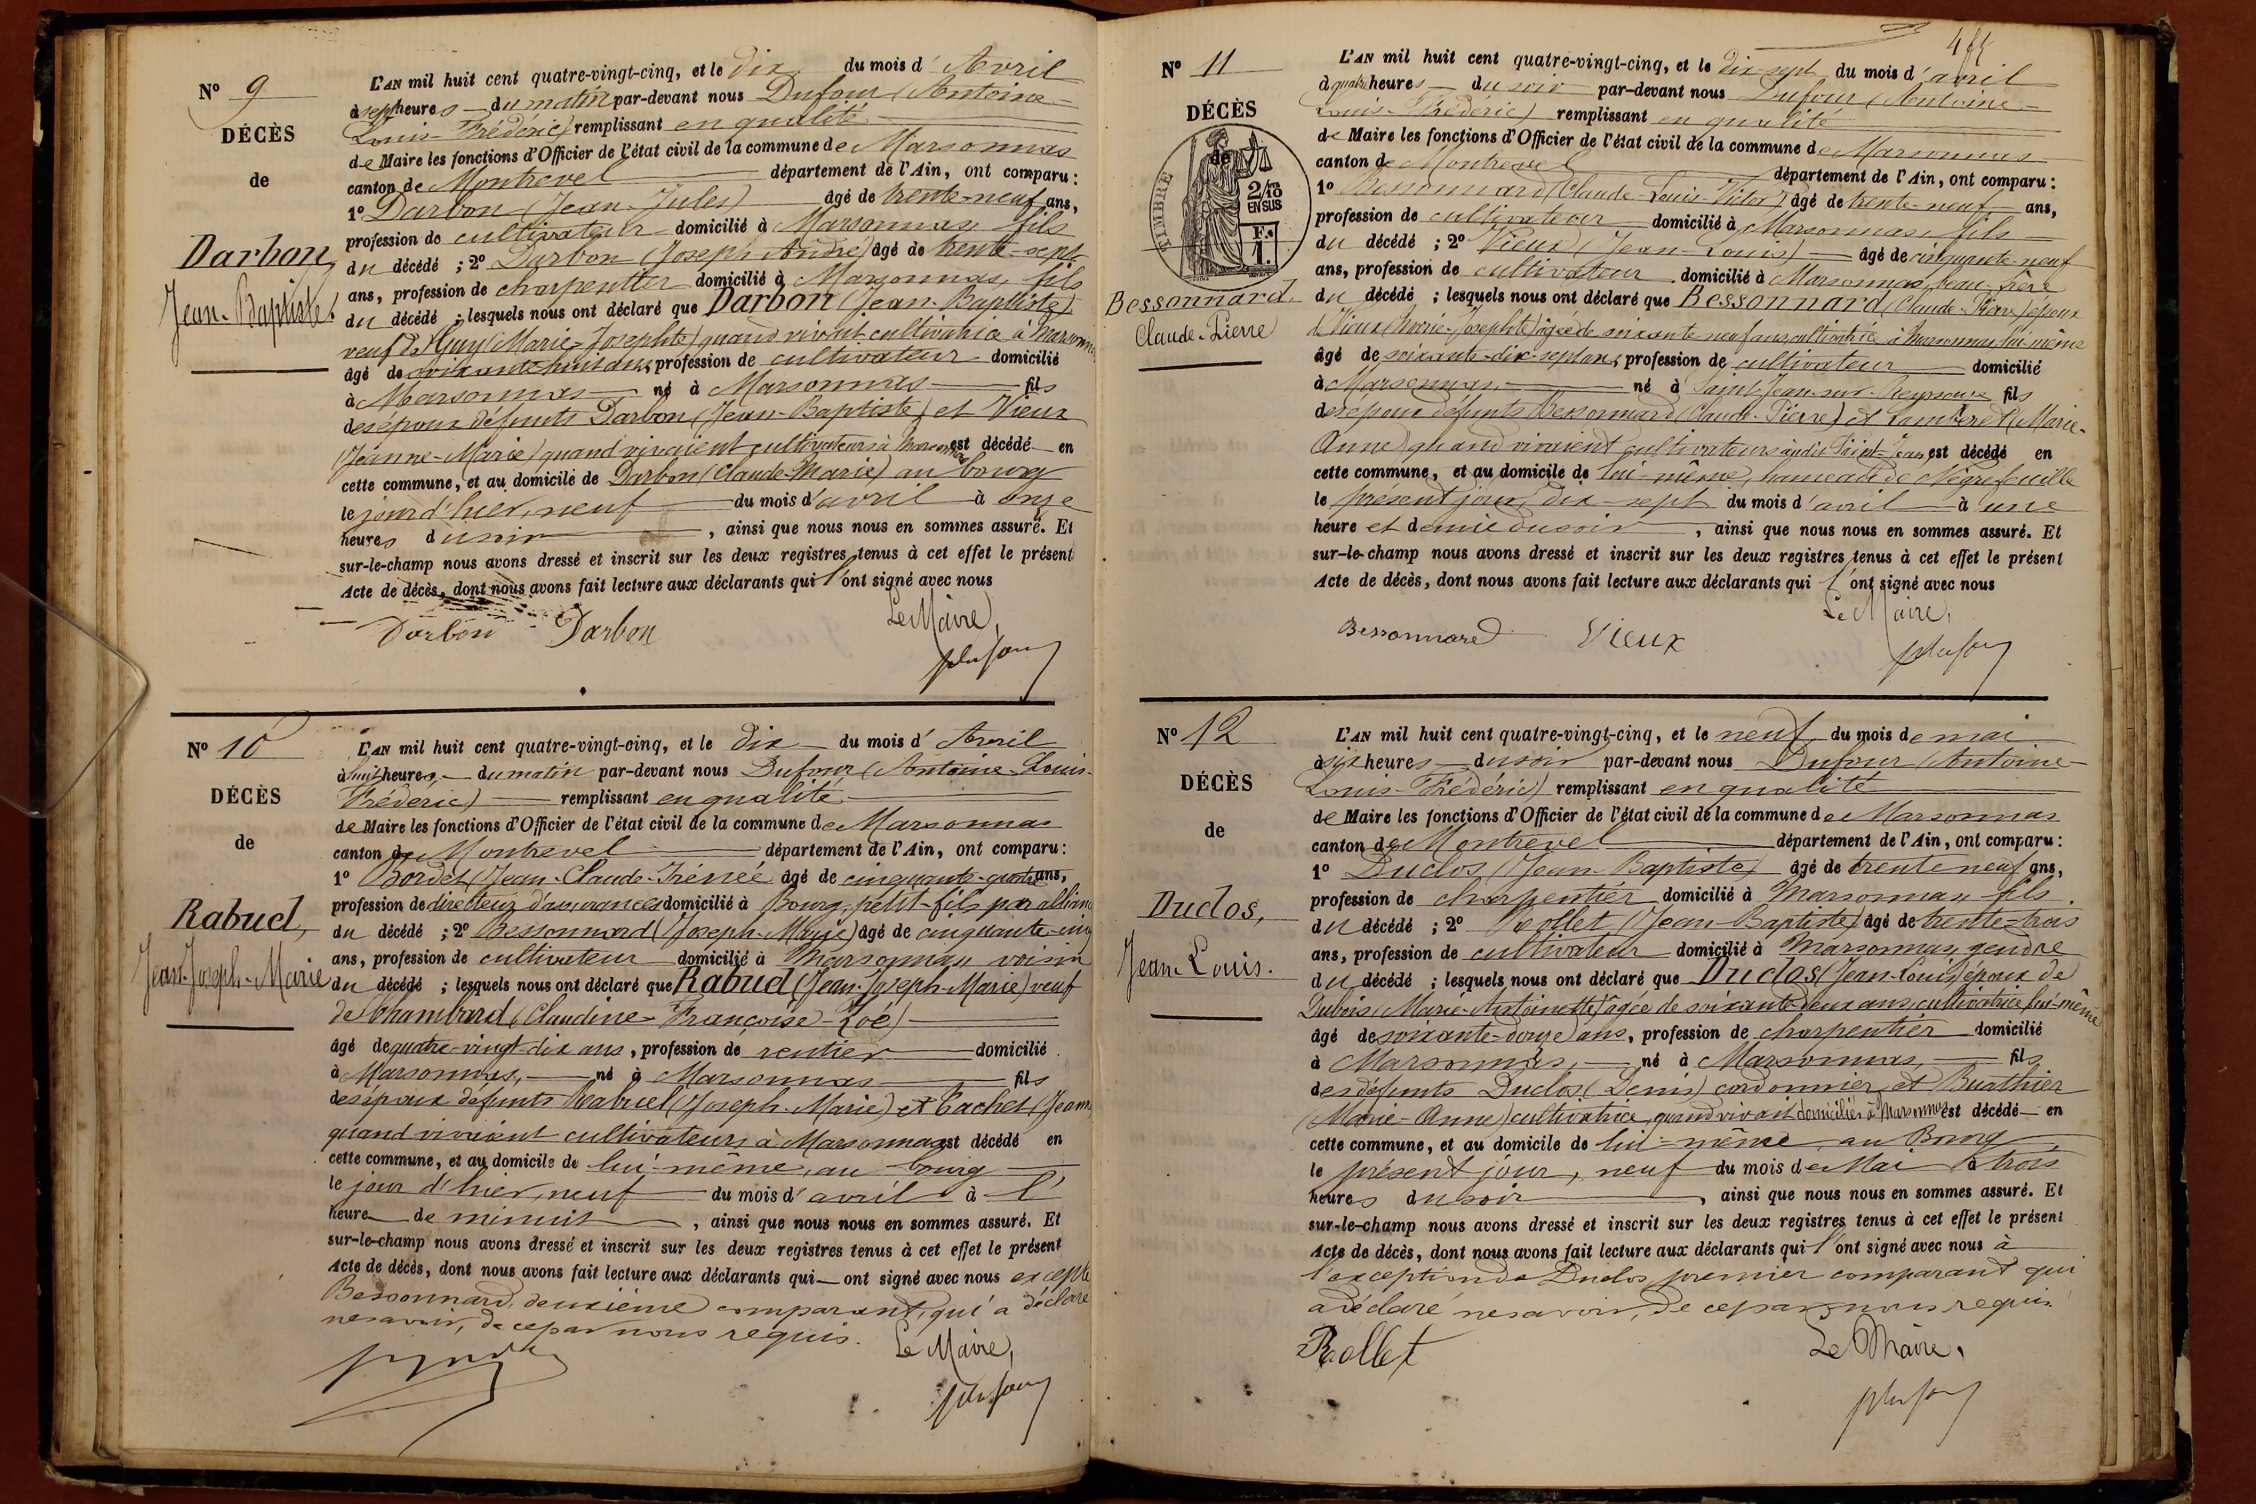 Nº 9
DÉCÈS
de
Darbon,
Jean-Baptiste.
L'AN mil huit cent quatre-vingt-cinq, et le dix du mois d'Avril
à sept heures du matin par-devant nous Dufour (Antoine
Louis-Frédéric) remplissant en qualité
de Maire les fonctions d'Officier de l'état civil de la commune de Marsonnas
canton de Montrevel département de l'Ain, ont comparu :
1º Darbon (Jean-Jules) âgé de trente-neuf ans,
profession de cultivateur domicilié à Marsonnas, fils
du décédé ; 2º Darbon (Joseph André) âgé de trente-sept
ans, profession de charpentier domicilié à Marsonnas, fils
du décédé ; lesquels nous ont déclaré que Darbon (Jean-Baptiste)
veuf de Guy (Marie-Josephte) quand vivait cultivatrice à Marsonnas
âgé de soixante-huit ans, profession de cultivateur domicilié
à Marsonnas né à Marsonnas fils
des époux défunts Darbon (Jean-Baptiste) et Vieux
(Jeanne-Marie) quand vivaient cultivateurs à Marsonnas est décédé en
cette commune, et au domicile de Darbon (Claude-Marie) au bourg
le jour d'hier, neuf du mois d'avril à onze
heures du soir, ainsi que nous nous en sommes assuré. Et
sur-le-champ nous avons dressé et inscrit sur les deux registres tenus à cet effet le présent
Acte de décès, dont nous avons fait lecture aux déclarants qui l'ont signé avec nous
Le Maire,
Darbon Darbon
Nº 10
DÉCÈS
de
Rabuel,
Jean-Joseph-Marie
L'AN mil huit cent quatre-vingt-cinq, et le dix du mois d'Avril
à huit heures du matin par-devant nous Dufour (Antoine-Louis-
Frédéric) remplissant en qualité
de Maire les fonctions d'Officier de l'état civil de la commune de Marsonnas
canton de Montrevel département de l'Ain, ont comparu :
1º Bordet (Jean-Claude-Irénée âgé de cinquante-quatre ans,
profession de directeur d'assurances domicilié à Bourg, petit-fils par alliance
du décédé ; 2º Bessonnard (Joseph-Marie) âgé de cinquante-cinq
ans, profession de cultivateur domicilié à Marsonnas, voisin
du décédé ; lesquels nous ont déclaré que Rabuel (Jean-Joseph-Marie) veuf
de Chambard (Claudine-Françoise-Zoé)
âgé de quatre-vingt-dix ans, profession de rentier domicilié
à Marsonnas, né à Marsonnas fils
des époux défunts Rabuel (Joseph-Marie) et Cachet (Jeanne
quand vivaient cultivateurs à Marsonnas est décédé en
cette commune, et au domicile de lui-même, au bourg
le jour d'hier, neuf du mois d'avril à l'
heure de minuit, ainsi que nous nous en sommes assuré. Et
sur-le-champ nous avons dressé et inscrit sur les deux registres tenus à cet effet le présent
Acte de décès, dont nous avons fait lecture aux déclarants qui ont signé avec nous excepté
Bessonnard, deuxième comparant, qui a déclaré
ne savoir, de ce par nous requis.
Le Maire,
Nº 11
DÉCÈS
de
TIMBRE
2/10
EN SUS
F.
1.
Bessonnard
Claude-Pierre
L'AN mil huit cent quatre-vingt-cinq, et le dix-sept du mois d'avril
à quatre heures du soir par-devant nous Dufour (Antoine-
Louis-Frédéric) remplissant en qualité
de Maire les fonctions d'Officier de l'état civil de la commune de Marsonnas
canton de Montrevel département de l'Ain, ont comparu :
1º Bessonnard (Claude-Louis-Victor) âgé de trente-neuf ans,
profession de cultivateur domicilié à Marsonnas, fils
du décédé ; 2º Vieux (Jean-Louis) âgé de cinquante-neuf
ans, profession de cultivateur domicilié à Marsonnas, beau-frère
du décédé ; lesquels nous ont déclaré que Bessonnard (Claude-Pierre) époux
d'Vieux (Marie-Josephte) âgée de soixante neuf ans cultivatrice à Marsonnas lui-même
âgé de soixante-dix-sept ans, profession de cultivateur domicilié
à Marsonnas né à Saint-Jean-sur-Reyssouze fils
des époux défunts Bessonnard (Claude-Pierre) et Lamberet (Marie-
Anne) quand vivaient cultivateurs audit Saint-Jean, est décédé en
cette commune, et au domicile de lui-même, hameau de Négrefeuille
le présent jour, dix-sept du mois d'avril à une
heure et demie du soir, ainsi que nous nous en sommes assuré. Et
sur-le-champ nous avons dressé et inscrit sur les deux registres tenus à cet effet le présent
Acte de décès, dont nous avons fait lecture aux déclarants qui l'ont signé avec nous
Le Maire,
Bessonnard Vieux
Nº 12
DÉCÈS
de
Duclos,
Jean-Louis.
L'AN mil huit cent quatre-vingt-cinq, et le neuf du mois de mai
à six heures du soir par-devant nous Dufour (Antoine-
Louis-Frédéric) remplissant en qualité
de Maire les fonctions d'Officier de l'état civil de la commune de Marsonnas
canton de Montrevel département de l'Ain, ont comparu :
1º Duclos (Jean-Baptiste) âgé de trente neuf ans,
profession de charpentier domicilié à Marsonnas, fils
du décédé ; 2º Rollet (Jean-Baptiste) âgé de trente-trois
ans, profession de cultivateur domicilié à Marsonnas, gendre
du décédé ; lesquels nous ont déclaré que Duclos (Jean-Louis) époux de
Dubois (Marie-Antoinette) âgée de soixante deux ans, cultivatrice, lui-même
âgé de soixante-douze ans, profession de charpentier domicilié
à Marsonnas, né à Marsonnas fils
des défunts Duclos (Denis) cordonnier, et Buathier
(Marie-Anne) cultivatrice, quand vivait domiciliés à Marsonnas est décédé en
cette commune, et au domicile de lui-même au Bourg,
le présent jour, neuf du mois de Mai à trois
heures du soir, ainsi que nous nous en sommes assuré. Et
sur-le-champ nous avons dressé et inscrit sur les deux registres tenus à cet effet le présent
Acte de décès, dont nous avons fait lecture aux déclarants qui l'ont signé avec nous à
l'exception de Duclos, premier comparant qui
a déclaré ne savoir, de ce par nous requis.
Rollet Le Maire,